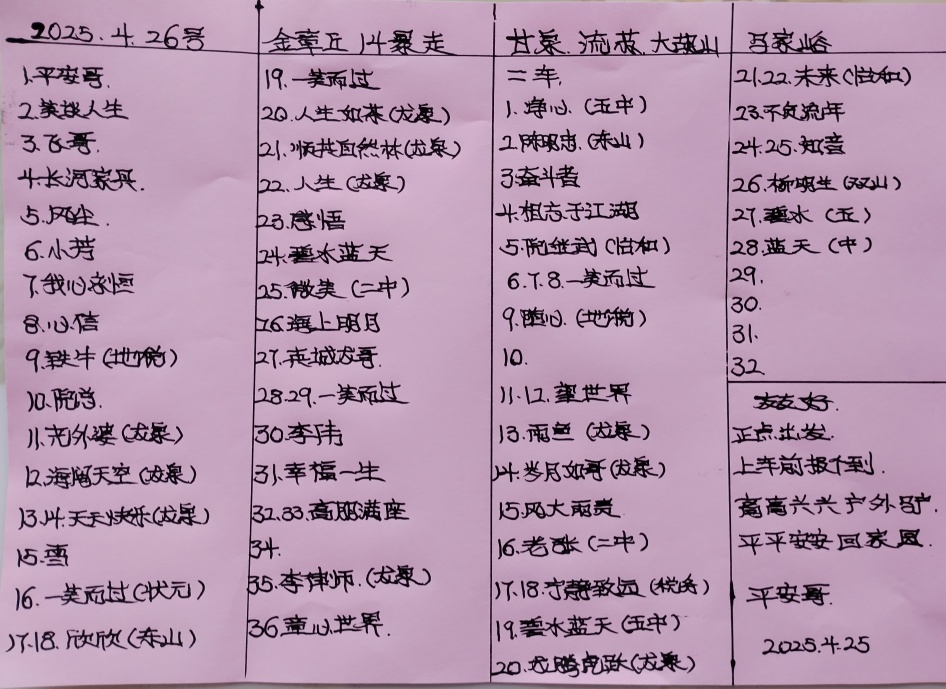 2025.4.26号
1.平安哥.
2.笑谈人生
3.飞哥.
4.长河家兵.
5.风尘.
6.小芳
7.我心永恒
8.心信
9.铁牛(地税)
10.院总.
11.充外婆(龙泉)
12.海阔天空(龙泉)
13.14.天天快乐(龙泉)
15.雪
16.一笑而过(状元)
17.18.欣欣(东山)
金章丘 14暴走
19.一笑而过
20.人生如茶(龙泉)
21.顺其自然林(龙泉)
22.人生(龙泉)
23.感悟
24.碧水蓝天
25.微美(二中)
26.海上明月
27.英城龙哥.
28.29.一笑而过
30.李伟
31.幸福一生
32.33.高朋满座
34.
35.李律师.(龙泉)
36.童心世界.
甘泉.流蓝.大寨山
二车,
1.净心(五中)
2.陈明忠.(东山)
3.奋斗者
4.相忘于江湖
5.阮继武(怡和)
6.7.8.一笑而过
9.随心.(地税)
10.
11.12.玺世界
13.雨鱼(龙泉)
14.岁月如哥(龙泉)
15.风大雨急
16.老张(二中)
17.18.宁静致远(税务)
19.碧水蓝天(五中)
20.龙腾虎跃(龙泉)
吕家峪
21.22.未来(怡和)
23.不负流年
24.25.知音
26.柳明生(双山)
27.碧水(五)
28.蓝天(中)
29.
30.
31.
32
友友好.
正点出发.
上车前报个到.
高高兴兴户外路.
平平安安回家园.
平安哥.
2025.4.25